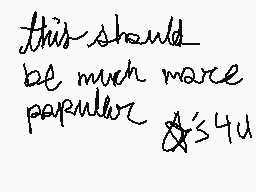 this should
be much more
populer
☆'s 4 u